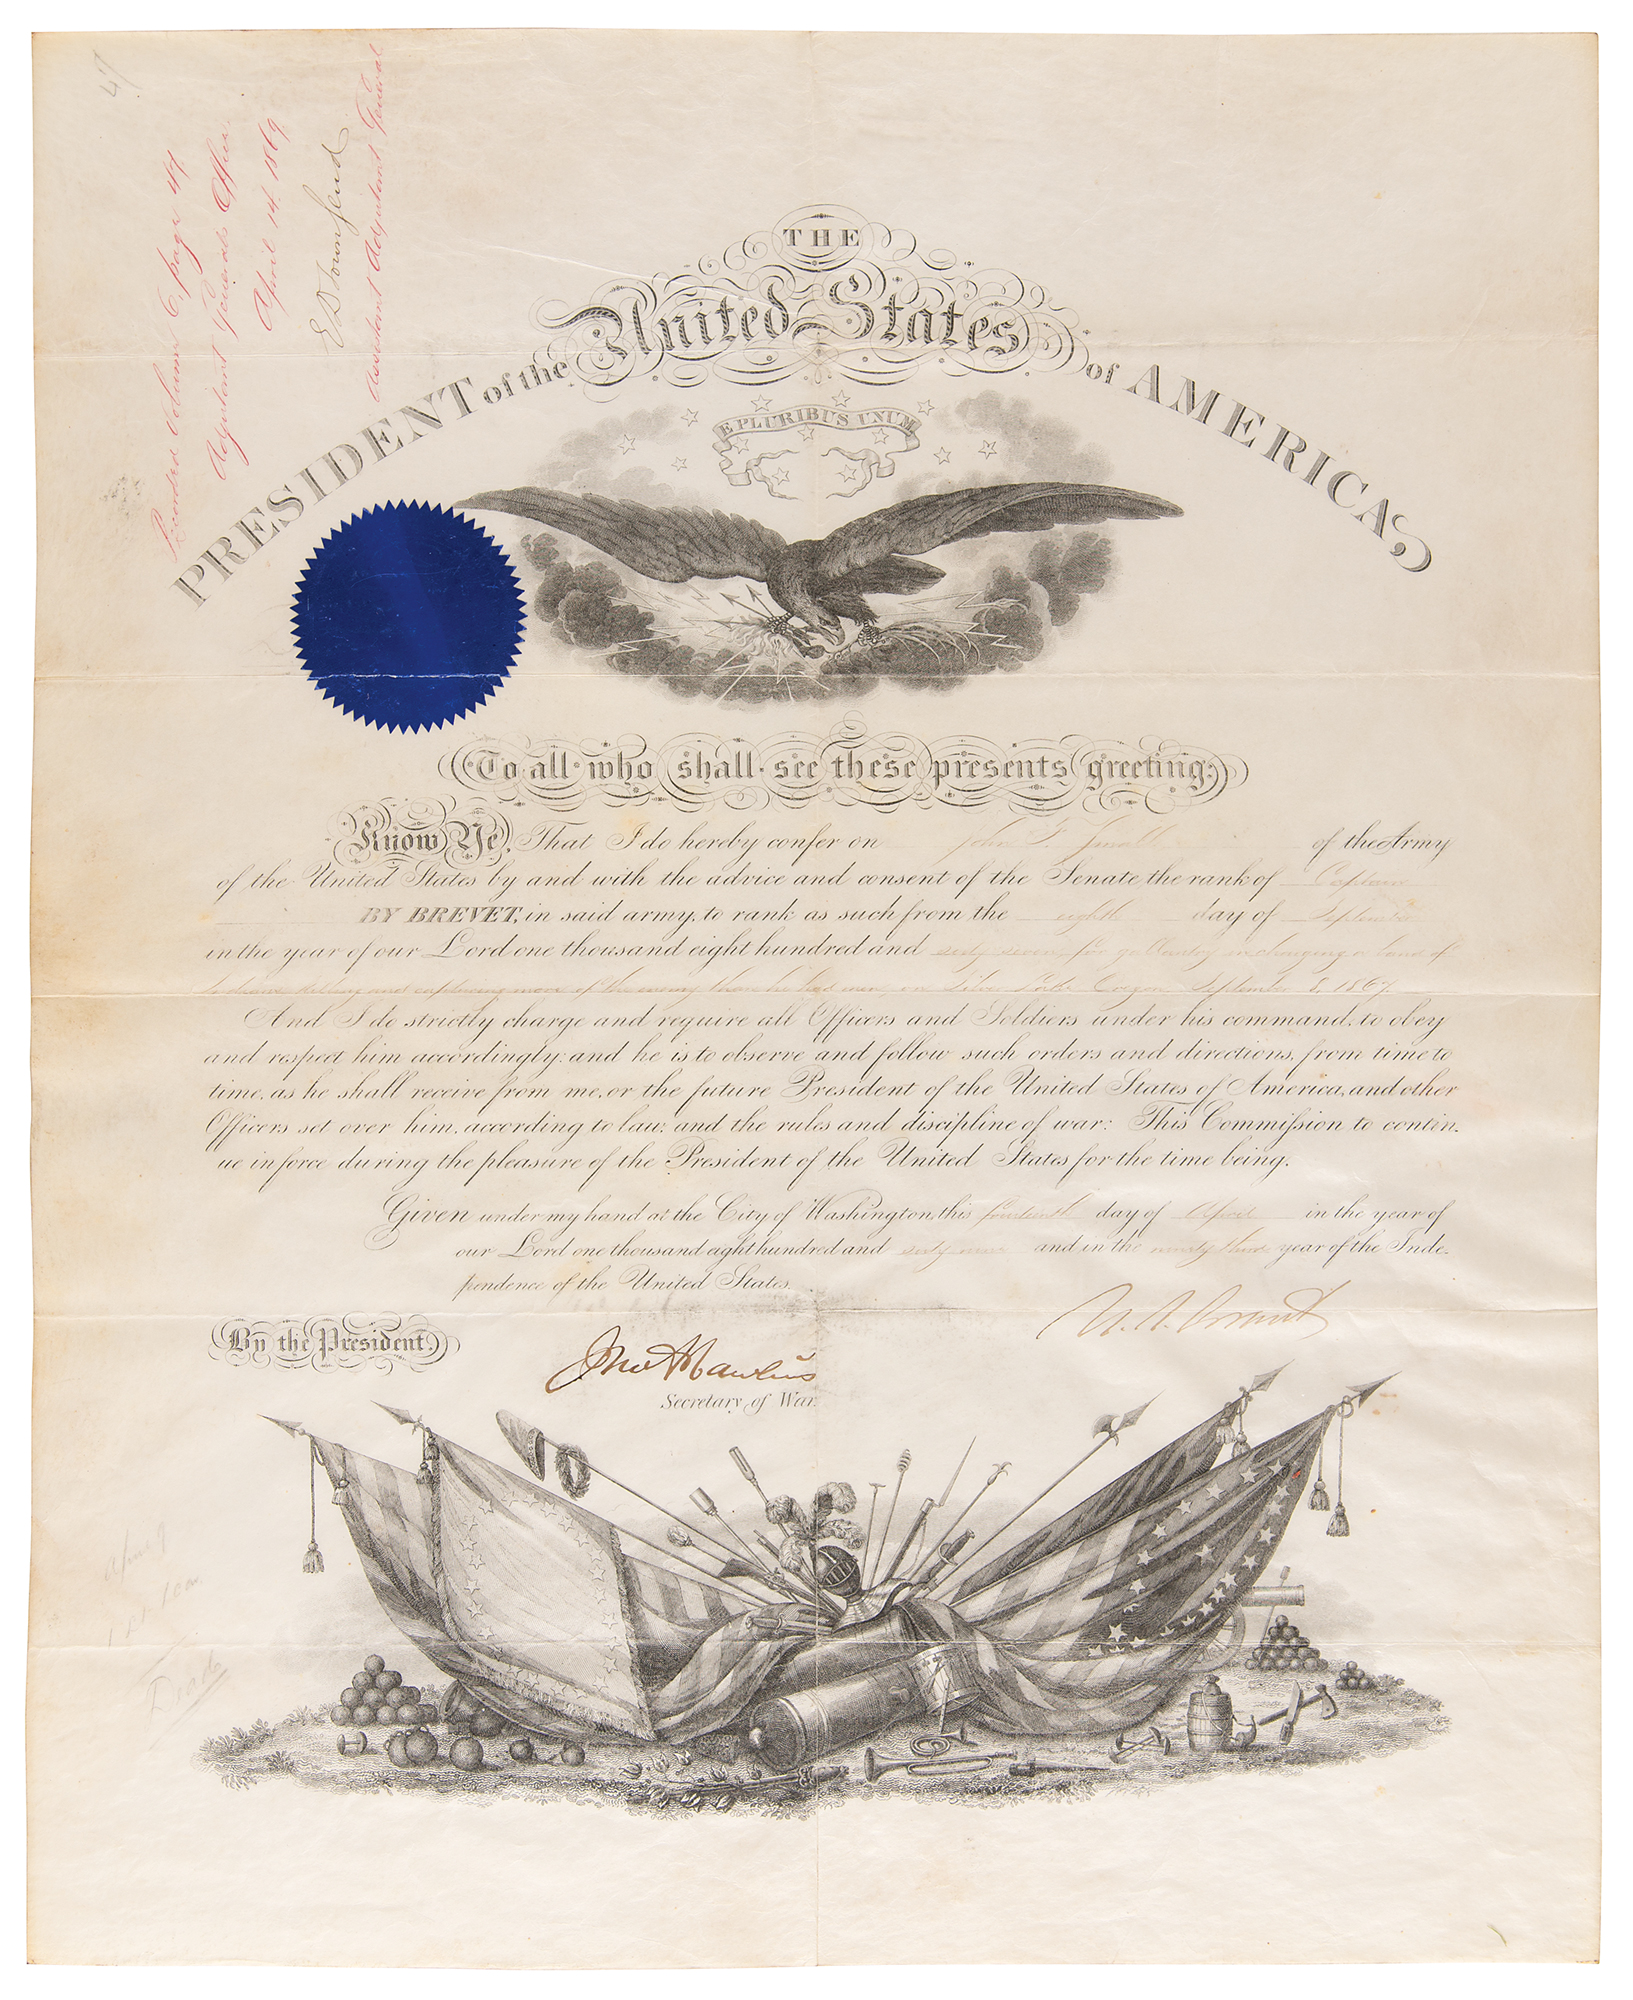 47
Recorded Volume 6, page 47
Adjutant General's Office
April 14. 1869
E D Townsend
Assistant Adjutant General
THE
PRESIDENT of the United States of AMERICA
E PLURIBUS UNUM
To all who shall see these presents greeting:
Know Ye, That I do hereby confer on John F. Small of the Army
of the United States by and with the advice and consent of the Senate the rank of Captain
BY BREVET, in said army, to rank as such from the eighth day of September
in the year of our Lord one thousand eight hundred and sixty seven, for gallantry in charging a band of
Indians, killing and capturing more of the enemy than he had men, on Silver Oregon, September 8, 1867.
And I do strictly charge and require all Officers and Soldiers under his command, to obey
and respect him accordingly: and he is to observe and follow such orders and directions, from time to
time, as he shall receive from me, or the future President of the United States of America, and other
Officers set over him, according to law, and the rules and discipline of war: This Commission to contin-
ue in force during the pleasure of the President of the United States for the time being.
Given under my hand at the City of Washington, this fourteenth day of April in the year of
our Lord one thousand eight hundred and sixty nine and in the ninety third year of the Inde-
pendence of the United States.
U. S. Grant
By the President.
Jno A Rawlins
Secretary of War.
1st
Dead